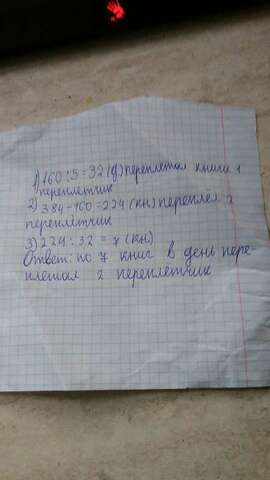 1) 160 : 5 = 32 (д) переплетал книги 1
переплетчик
2) 384 - 160 = 224 (кн) переплел 2
переплетчик
3) 224 : 32 = 7 (кн)
Ответ: по 7 книг в день пере-
плетал 2 переплетчик